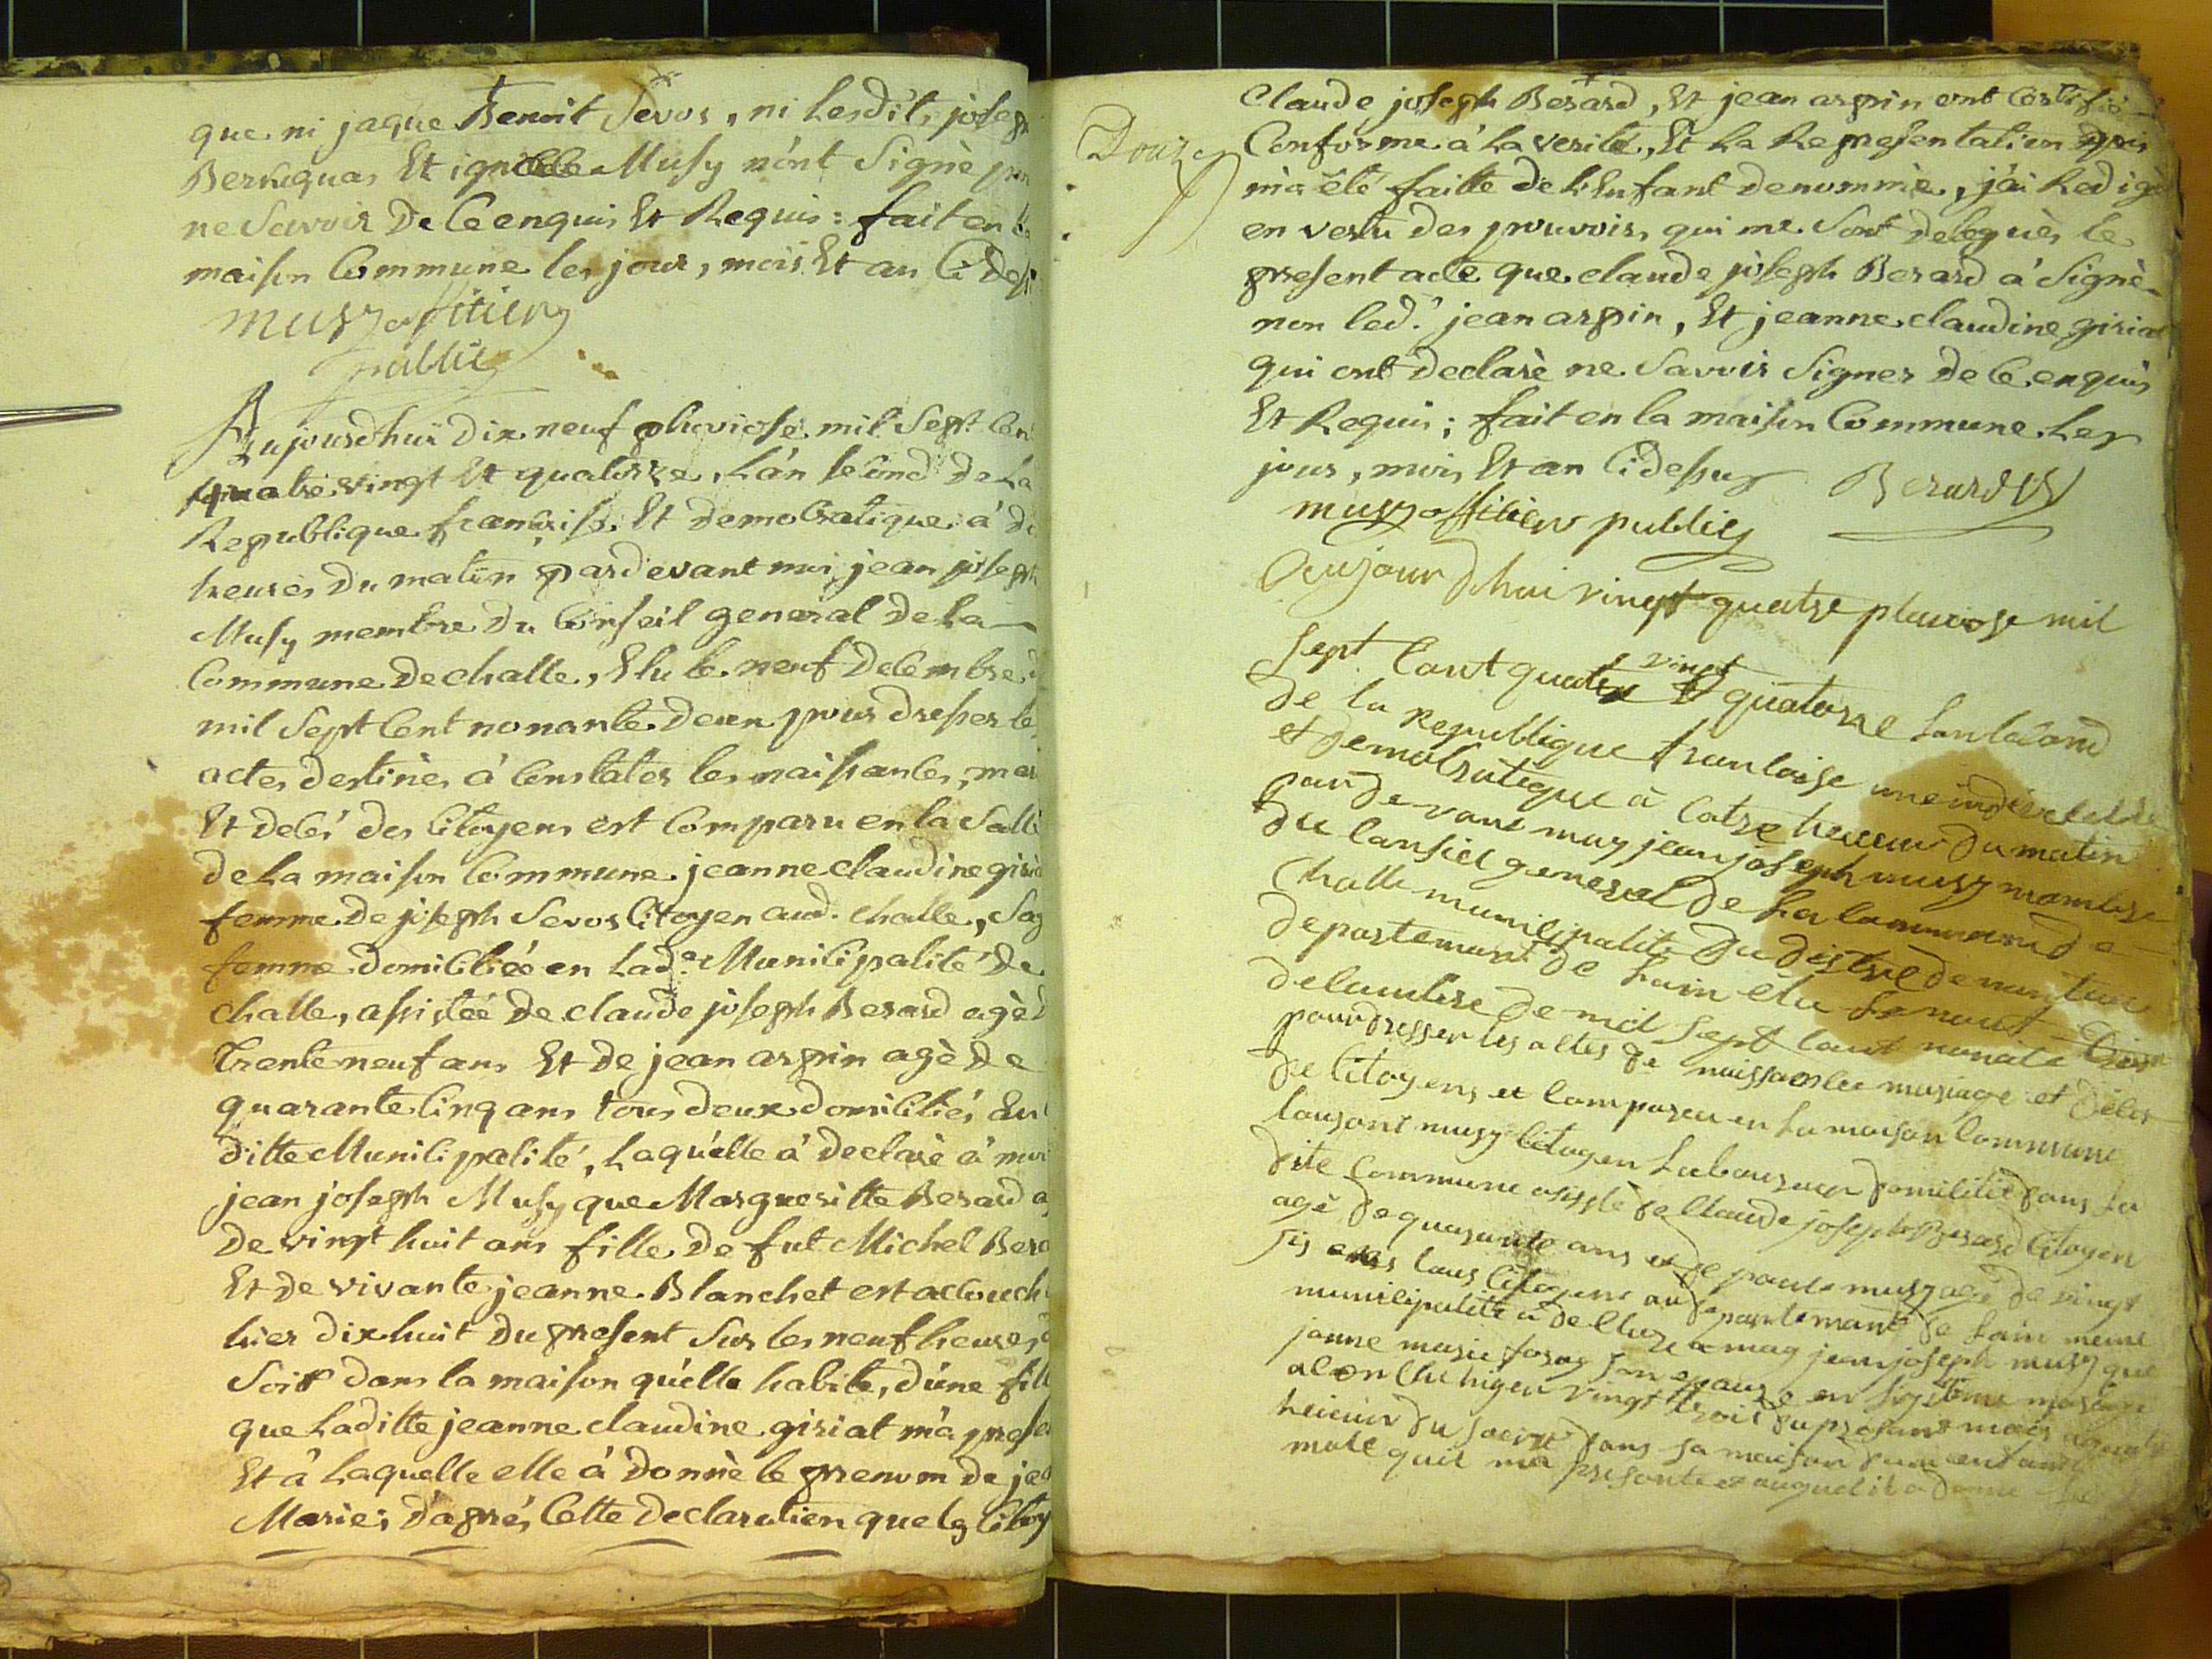 que ni jaque Benoit Sevos, ni lesdits joseph
Berluquas Et ignalle Musy n'ont Signè pour
ne Savoir De Ce enquis Et Requis: fait en la
maison Commune les jour, mois Et an Ci Dessus
musy offitiery
public
Aujourdhui Dix neuf pluviose mil Sept Cent
quatre vingt Et quatorze, L'an second De La
Republique francoise Et Democratique à
heures Du matin pardevant moi jean joseph
Musy membre Du Conseil general De La
Commune De challe, Elu le neuf Decembre
mil Sept Cent nonante Deux pour dresser les
actes destinés à Constater les naissances,
Et Decés des Citoyens est Comparu en la Salle
De La maison Commune jeanne claudine giriat
femme De joseph Sevos Citoyen aud. challe, Sage
femme Domiciliée en Lad.e Municipalité De
challe, assistée De claude joseph Berard agè
trente neuf ans Et De jean arpin agè De
quarante cinq ans tous deux domiciliés En
ditte Municipalité, Laquelle à Declarè à moi
jean joseph Musy que Margueritte Berard
De vingt huit ans fille De fut Michel Berard
Et De vivante jeanne Blanchet est accouché
hier dix huit Du present Sur les neuf heures
Soir dans la maison qu'elle habite, d'une fille
que Laditte jeanne claudine giriat m'a
Et à Laquelle elle à Donnè le prenom De
Marie; d'après Cette Declaration que les
Douze
Claude joseph Berard, Et jean arpin ont Certifiè
Conforme à La verité, Et La Representation qui
m'a été faitte De L'Enfant Denommèe, j'ai Redigè
en vertu Des pouvoirs qui me Sont Deleguès le
present acte que claude joseph Berard à Signè
non led.t jean arpin, Et jeanne claudine giriat
qui ont Declarè ne Savoir Signer De Ce enquis
Et Requis; fait en la maison Commune Les
jour, mois Et an Ci dessus Berard
musy offitier public
Aujour Dhui vingt quatre pluviose mil
Sept Cant quatre vingt quatorze Lan Cecond
De la Republique francoise une indivisible
et Democratique à Catre heure du matin
par De vant moy jean joseph musy mambre
Du Consiel general De La Commune De
Challe municipalité Du Distric De nantua
Departemant De Lain elu Le neuf
Decambre De mil sept Cant nonante
pour dresser les actes De naissance mariage et Deces
De Citoyens et Comparu en La maison Commune
musy Citoyen Laboureur Domicilié Dans La
Dite Commune assisté De Claude joseph Berard Citoyen
agé De quarante ans et De paule musy agé De vingt
sis ans tous Citoyens au Departemant De Lain meme
municipalité à Declaré à moy jean joseph musy que
janne marie son epouse en
acouche hyer vingt trois Du presant mois à quatre
heure Du soir Dans sa maison Dun anfant
male quil ma presanté et auquel il a Donné